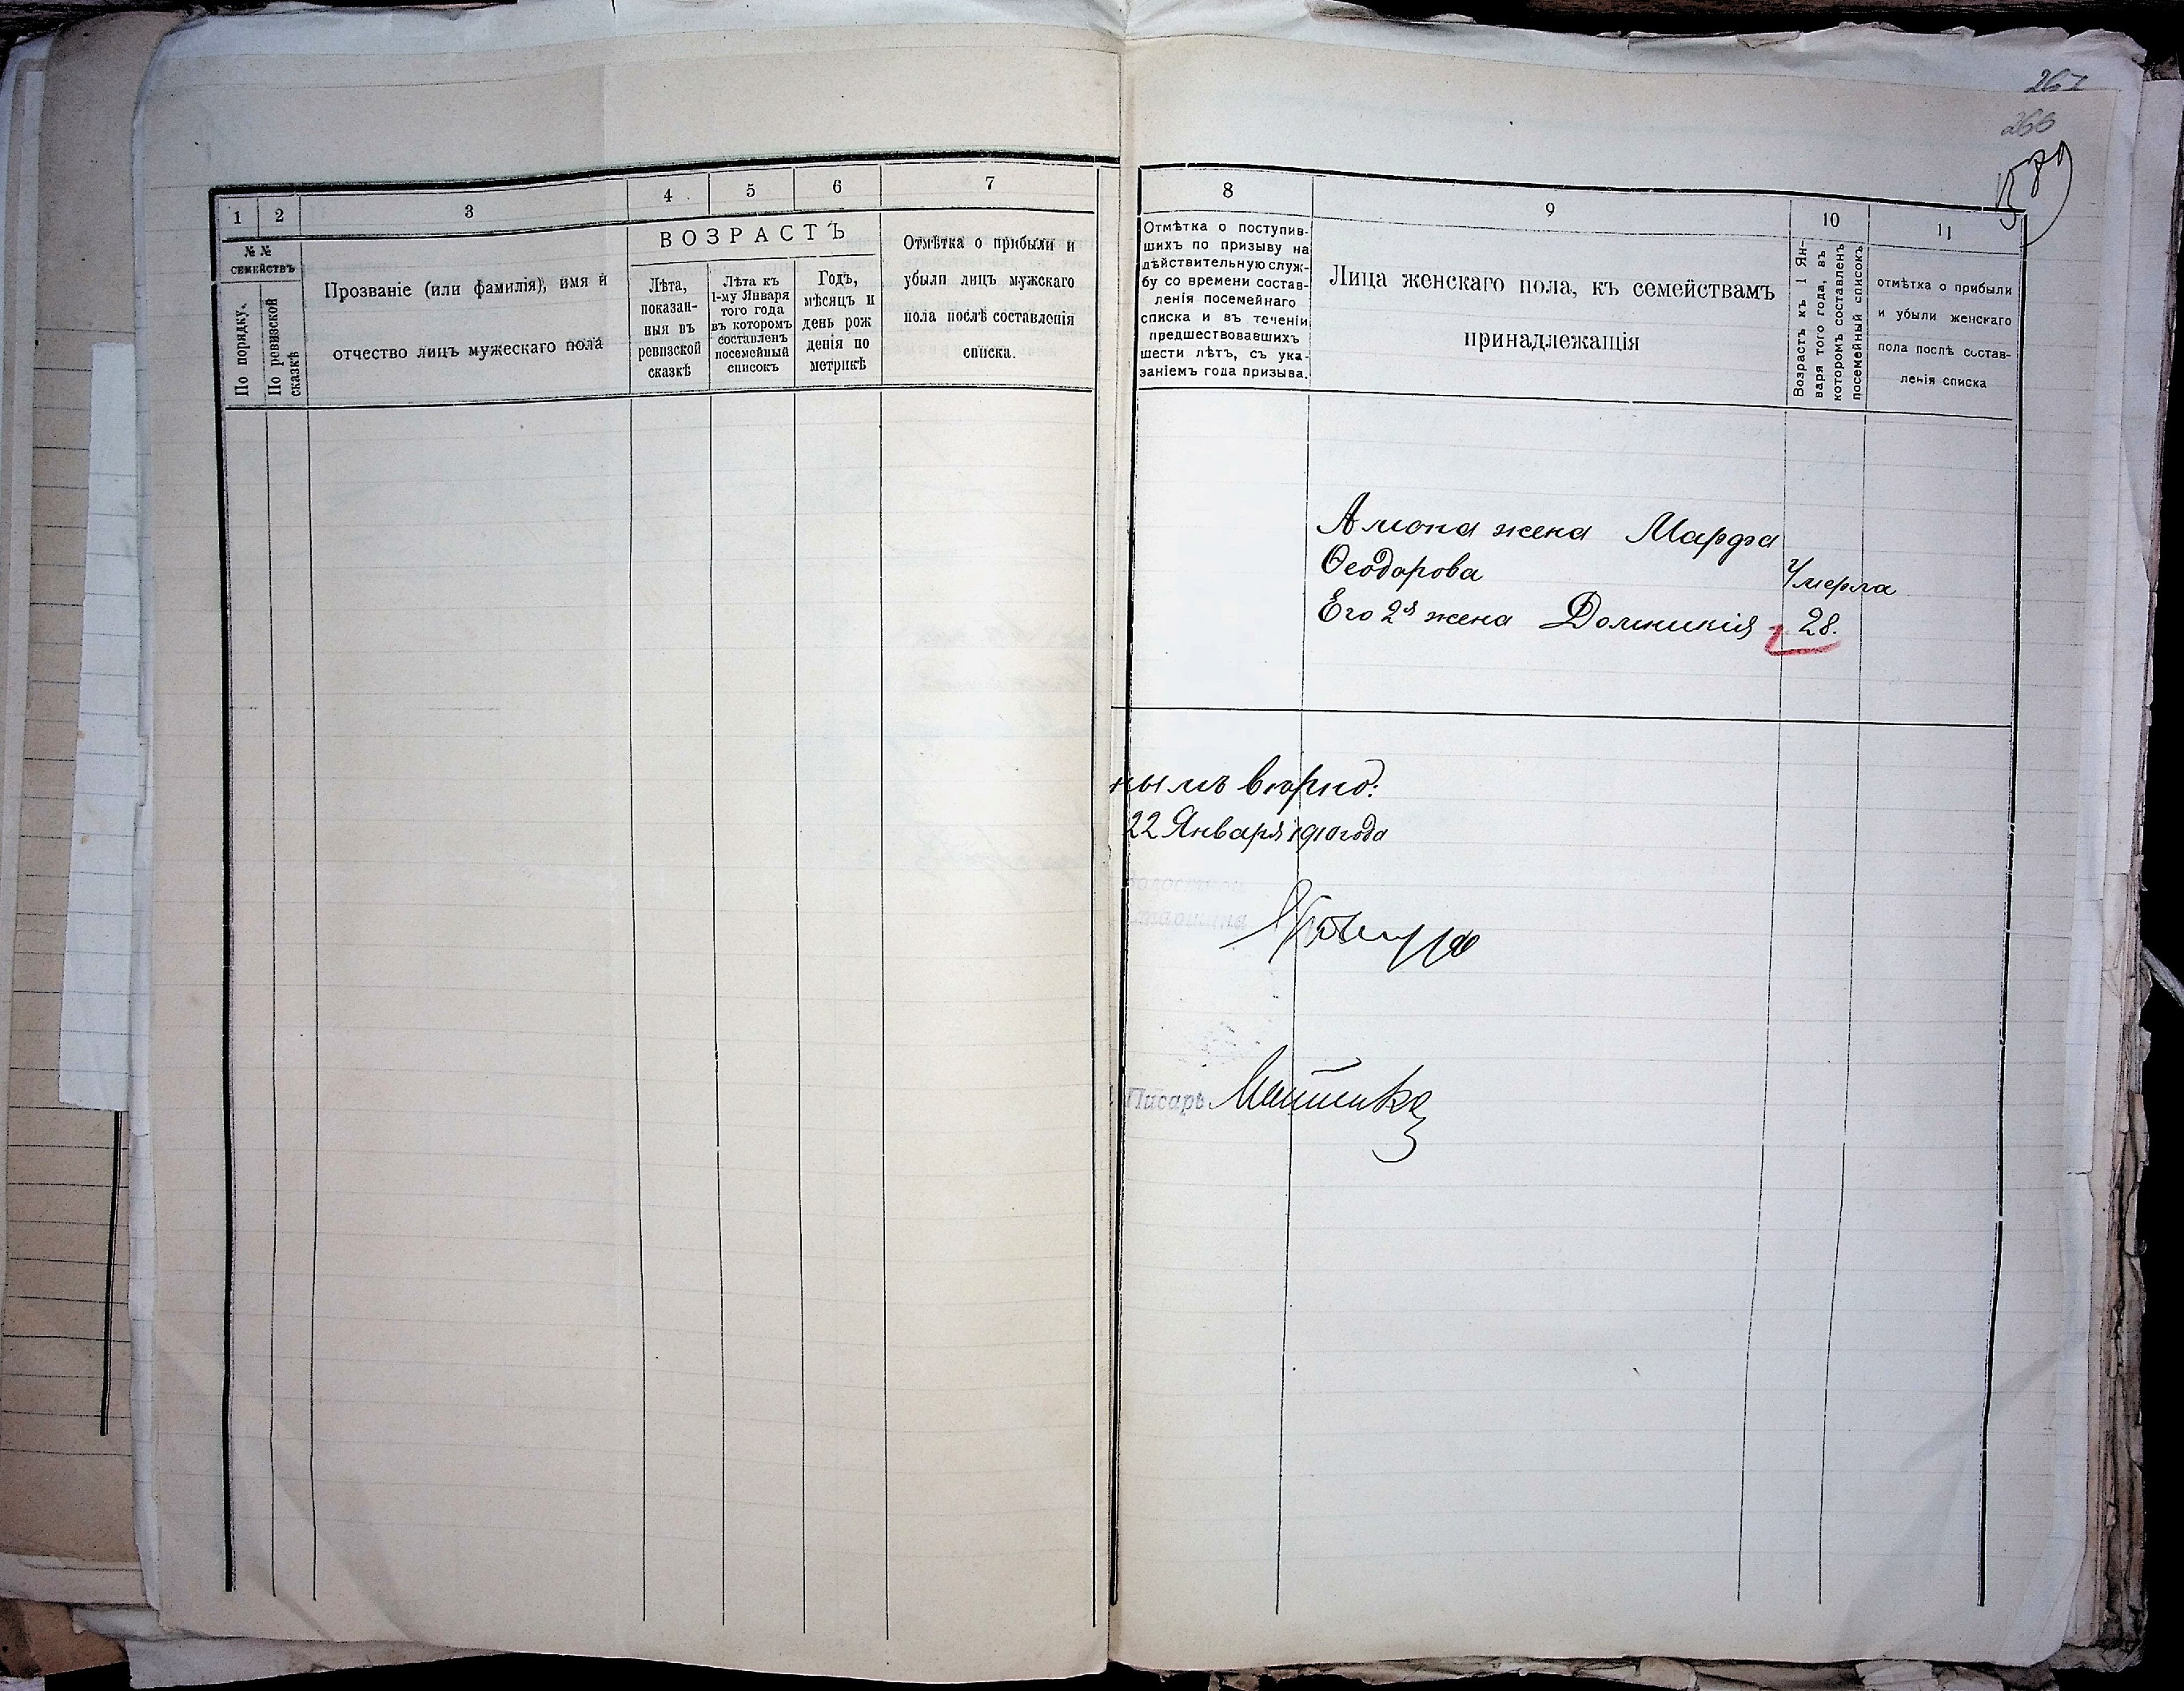 267
266
589
1
2
3
4
5
6
7
№ №
семействъ
По порядку.
По ревизской
сказкѣ
Прозваніе (или фамилія), имя и
отчество лицъ мужескаго пола
ВОЗРАСТЪ
Лѣта,
показан-
ныя въ
ревизской
сказкѣ
Лѣта къ
1-му Января
того года
въ которомъ
составленъ
посемейный
списокъ
Годъ,
мѣсяцъ и
день рож
денія по
метрикѣ
Отмѣтка о прибыли и
убыли лицъ мужскаго
пола послѣ составленія
списка.
8
9
10
11
Отмѣтка о поступив-
шихъ по призыву на
дѣйствительную служ-
бу со времени состав-
ленія посемейнаго
списка и въ теченіи
предшествовавшихъ
шести лѣтъ, съ ука-
заніемъ года призыва.
Лица женскаго пола, къ семействамъ
принадлежащія
Возрастъ къ 1 Ян-
варя того года, въ
которомъ составленъ
посемейный списокъ
отмѣтка о прибыли
и убыли женскаго
пола послѣ состав-
ленія списка
жена Марфа
Ѳеодорова
Умерла
Его 2я жена Домникія 28.
нымъ вѣрно:
22 Января 1910 года
Волостной
Старшина
Писарь